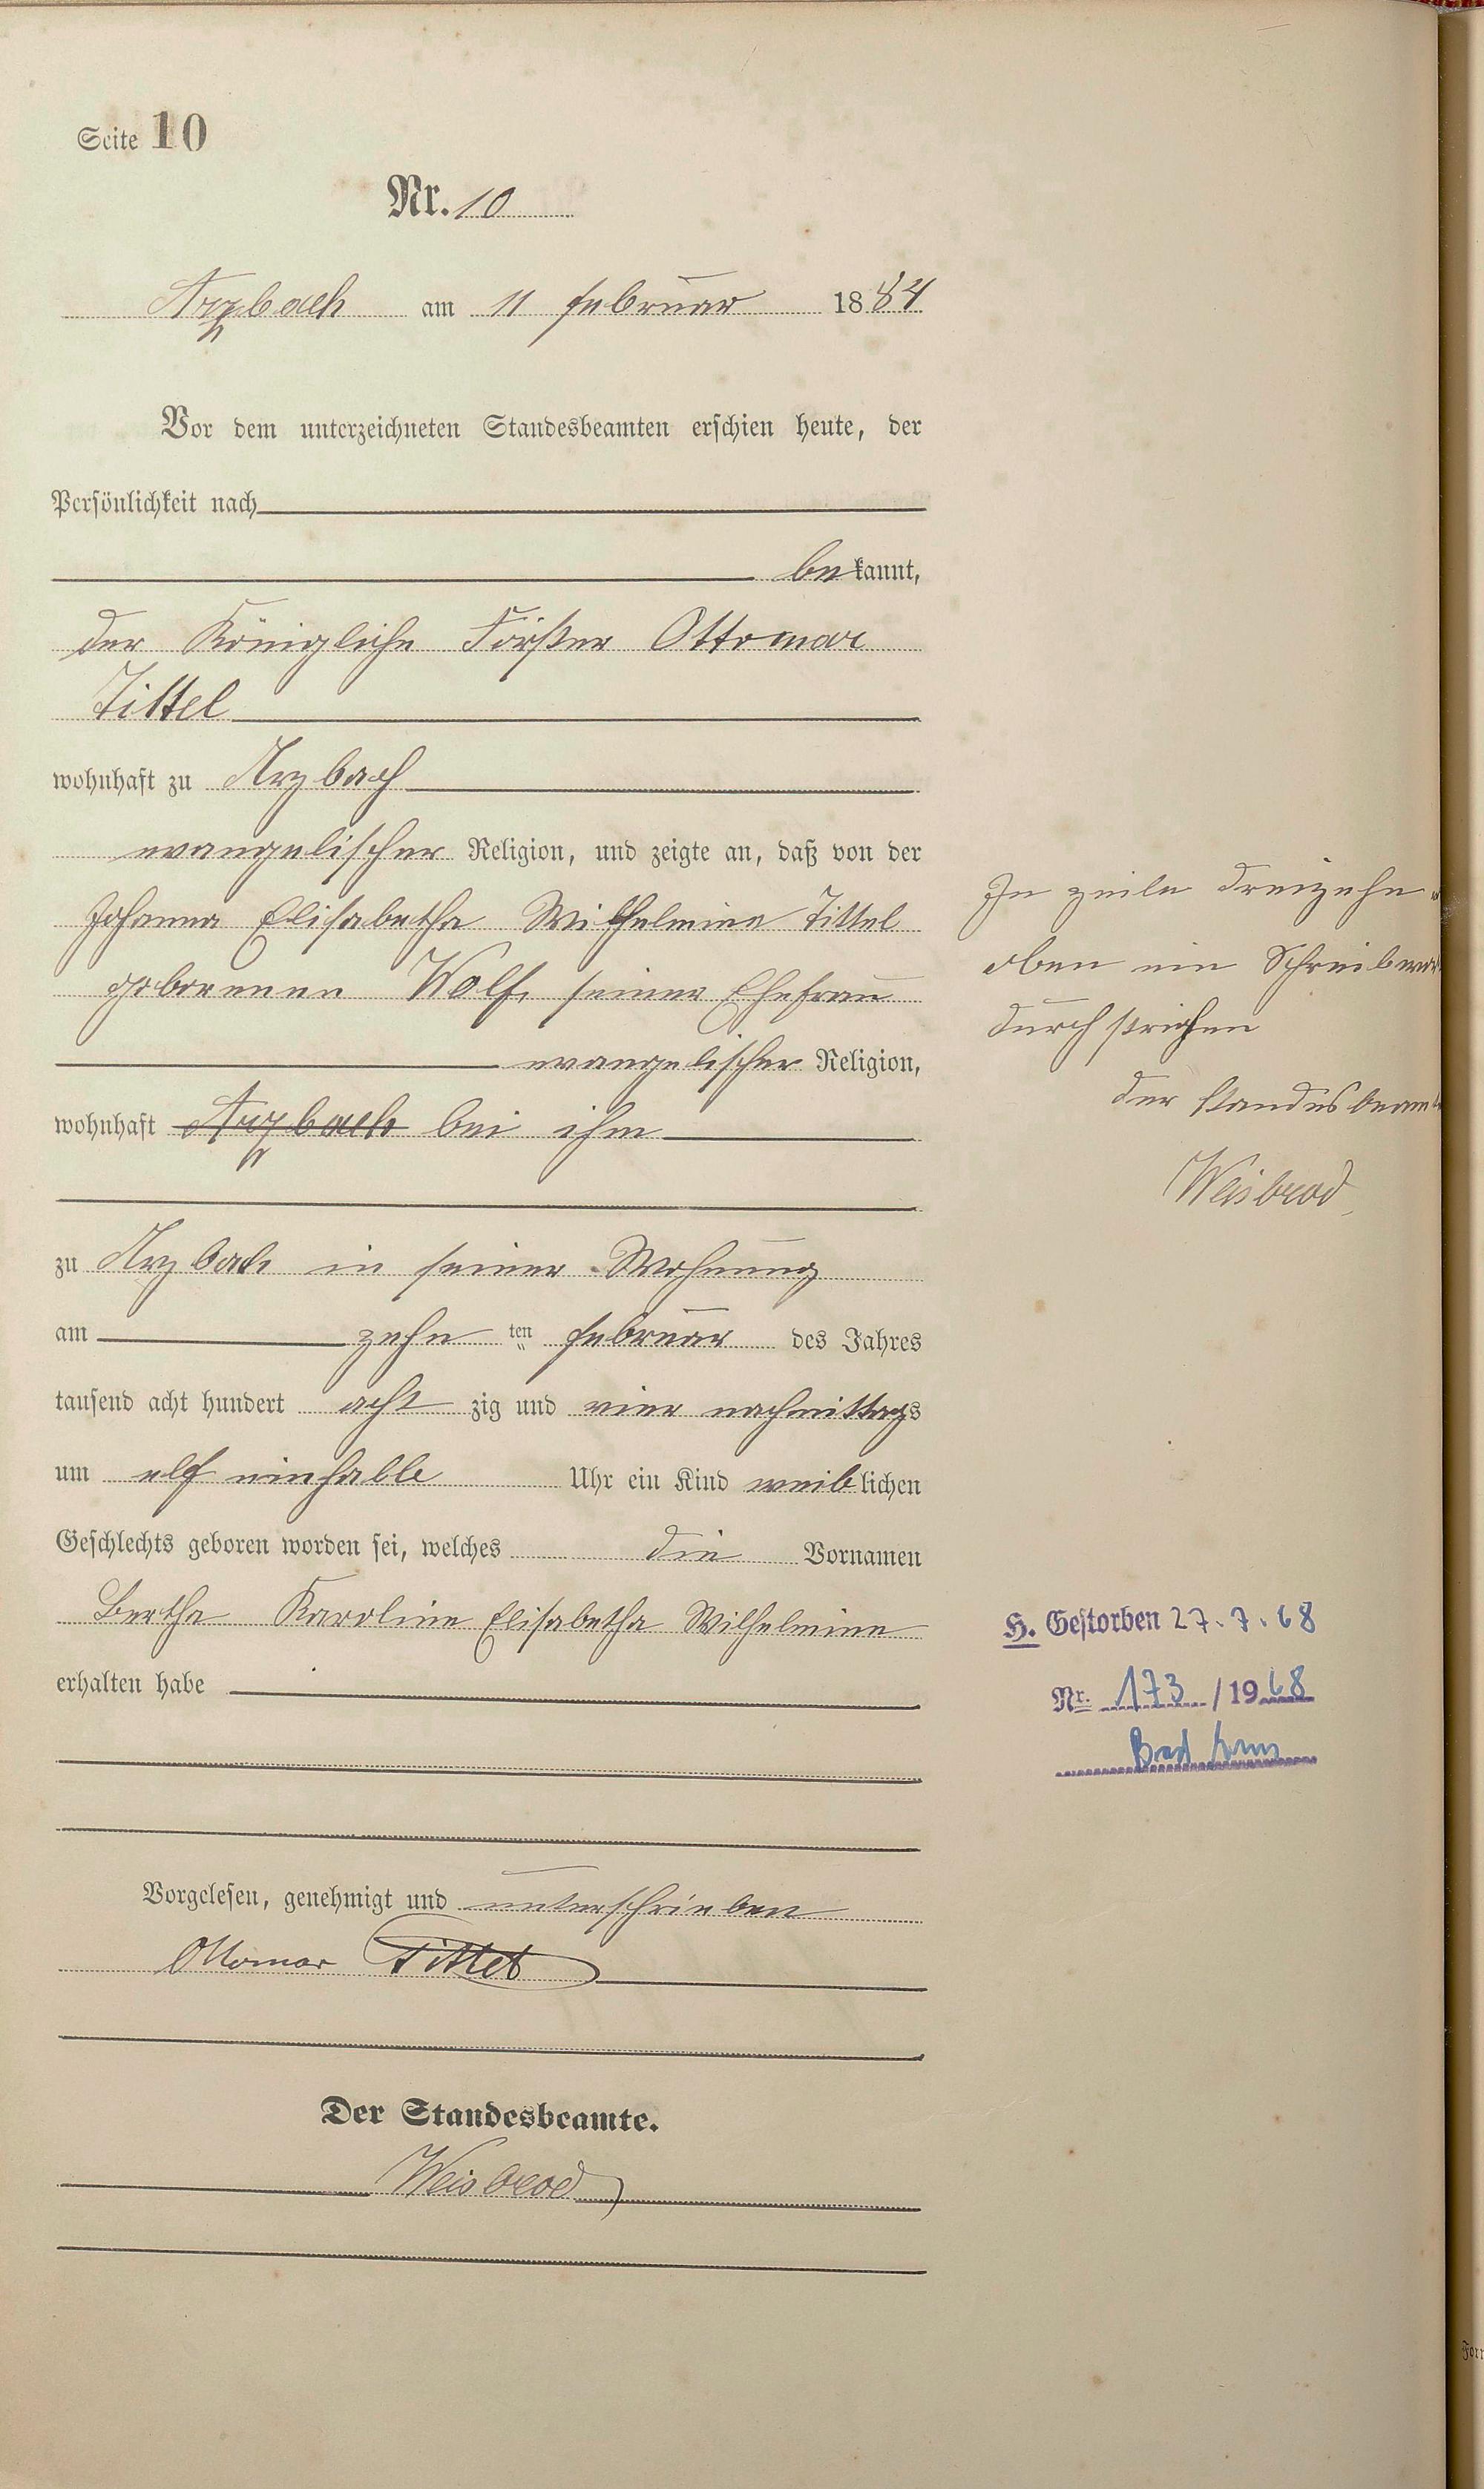 Seite 10
Nr. 10
Arzbach am 11 Februar 1884
Vor dem unterzeichneten Standesbeamten erschien heute, der
Persönlichkeit nach
bekannt,
der Königliche Förster Ottomar
Tittel
wohnhaft zu Arzbach
evangelischer Religion, und zeigte an, daß von der
Johanna Elisabetha Wilhelmine Tittel
geborenen Wolf, seiner Ehefrau
evangelischer Religion,
wohnhaft Arzbach bei ihm
zu Arzbach in seiner Wohnung
am zehn ten Februar des Jahres
tausend acht hundert acht zig und vier nachmittags
um elf einhalb Uhr ein Kind weiblichen
Geschlechts geboren worden sei, welches die Vornamen
Bertha Karoline Elisabetha Wilhelmine
erhalten habe
Vorgelesen, genehmigt und unterschrieben
Ottomar Tittel
Der Standesbeamte.
Weisbrod
In Zeile dreizehn
oben ein
durchstrichen
der
Weisbrod
H. Gestorben 27.7.68
Nr. 173 / 1968
Bad Ems